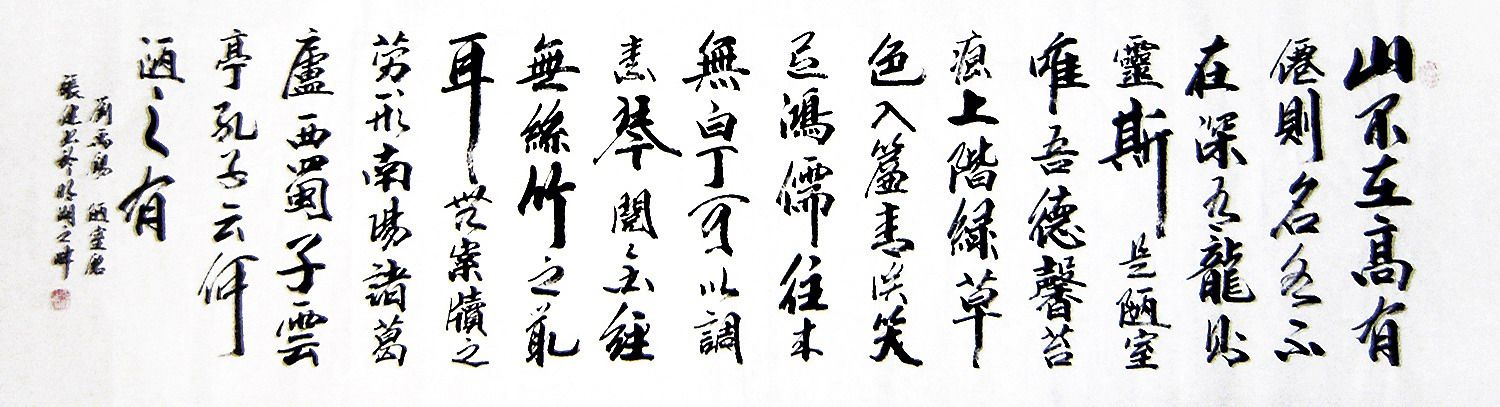 山不在高有
僊則名水不
在深有龍則
靈斯是陋室
唯吾德馨苔
痕上階緑草
色入簾青談笑
有鴻儒往来
無白丁可以調
素琴閲金經
無絲竹之亂
耳無案牘之
勞形南陽諸葛
廬西蜀子雲
亭孔子云何
陋之有
劉禹錫 陋室銘
張建書於明湖之畔